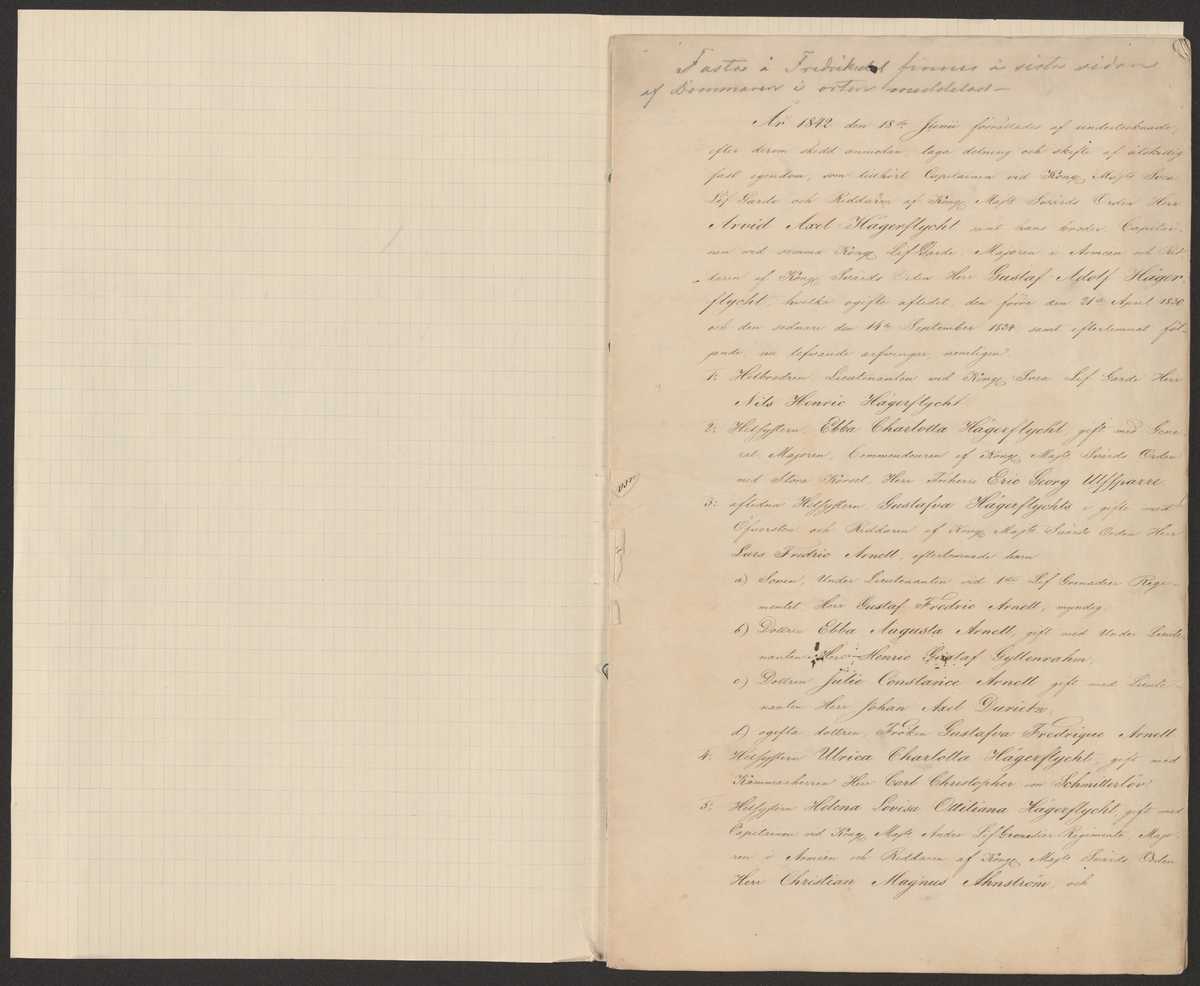 Fasta å Fredriksdal finnes å sista sidan
af Dommaren i orten meddelad
År 1842 den 18de Junii förrättades af undertecknade,
efter derom skedd anmodan, laga delning och skifte af åtskillig
fast egendom, som tillhört Capitainen vid Kongl Majts Svea
Lif Garde och Riddaren af Kongl Majts Svärds Orden Herr
Arvid Axel Hägerflycht samt hans broder Capitai-
nen vid samma Kongl Lif Garde, Majoren i Arméen och Rid-
daren af Kongl Svärds Orden Herr Gustaf Adolf Häger-
flycht, hvilka ogifte aflidit, den förre den 21ste April 1830
och den sednare den 14de September 1834, samt efterlemnat föl-
jande, nu lefwande arfwingar, nemligen:
1: Helbrodren, Lieutenanten vid Kongl Svea Lif Garde Herr
Nils Henric Hägerflycht
2: Helsystern, Ebba Charlotta Hägerflycht gift med Gene-
ral Majoren, Commendeuren af Kongl Majts Svärds Orden
med Stora Korset, Herr Friherre Eric Georg Ulfsparre.
3: aflidna Helsystern, Gustafva Hägerflychts i gifte med
Öfversten och Riddaren af Kongl Majts Svärds Orden Herr
Lars Fredric Arnell, efterlemnade barn
a) Sonen, Under Lieutenanten vid 1sta Lif Grenadier Rege-
mentet, Herr Gustaf Fredric Arnell, myndig,
b) Dottren Ebba Augusta Arnell, gift med Under Lieute-
nanten Herr Henric Gustaf Gyllenrahm,
c) Dottren Julie Constance Arnell gift med Lieute-
nanten Herr Johan Axel Durietze,
d) ogifta dottren, Fröken Gustafva Fredrique Arnell
4: Helsystern Ulrica Charlotta Hägerflycht, gift med
Kammarherren Herr Carl Christopher von Schmitterlöv
5: Helsystern Helena Lovisa Ottiliana Hägerflycht, gift med
Capitainen vid Kongl Majts Andra Lif Grenadier Regimente, Majo-
ren i Arméen och Riddaren af Kongl Majts Svärds Orden
Herr Christian Magnus Ahnström, och